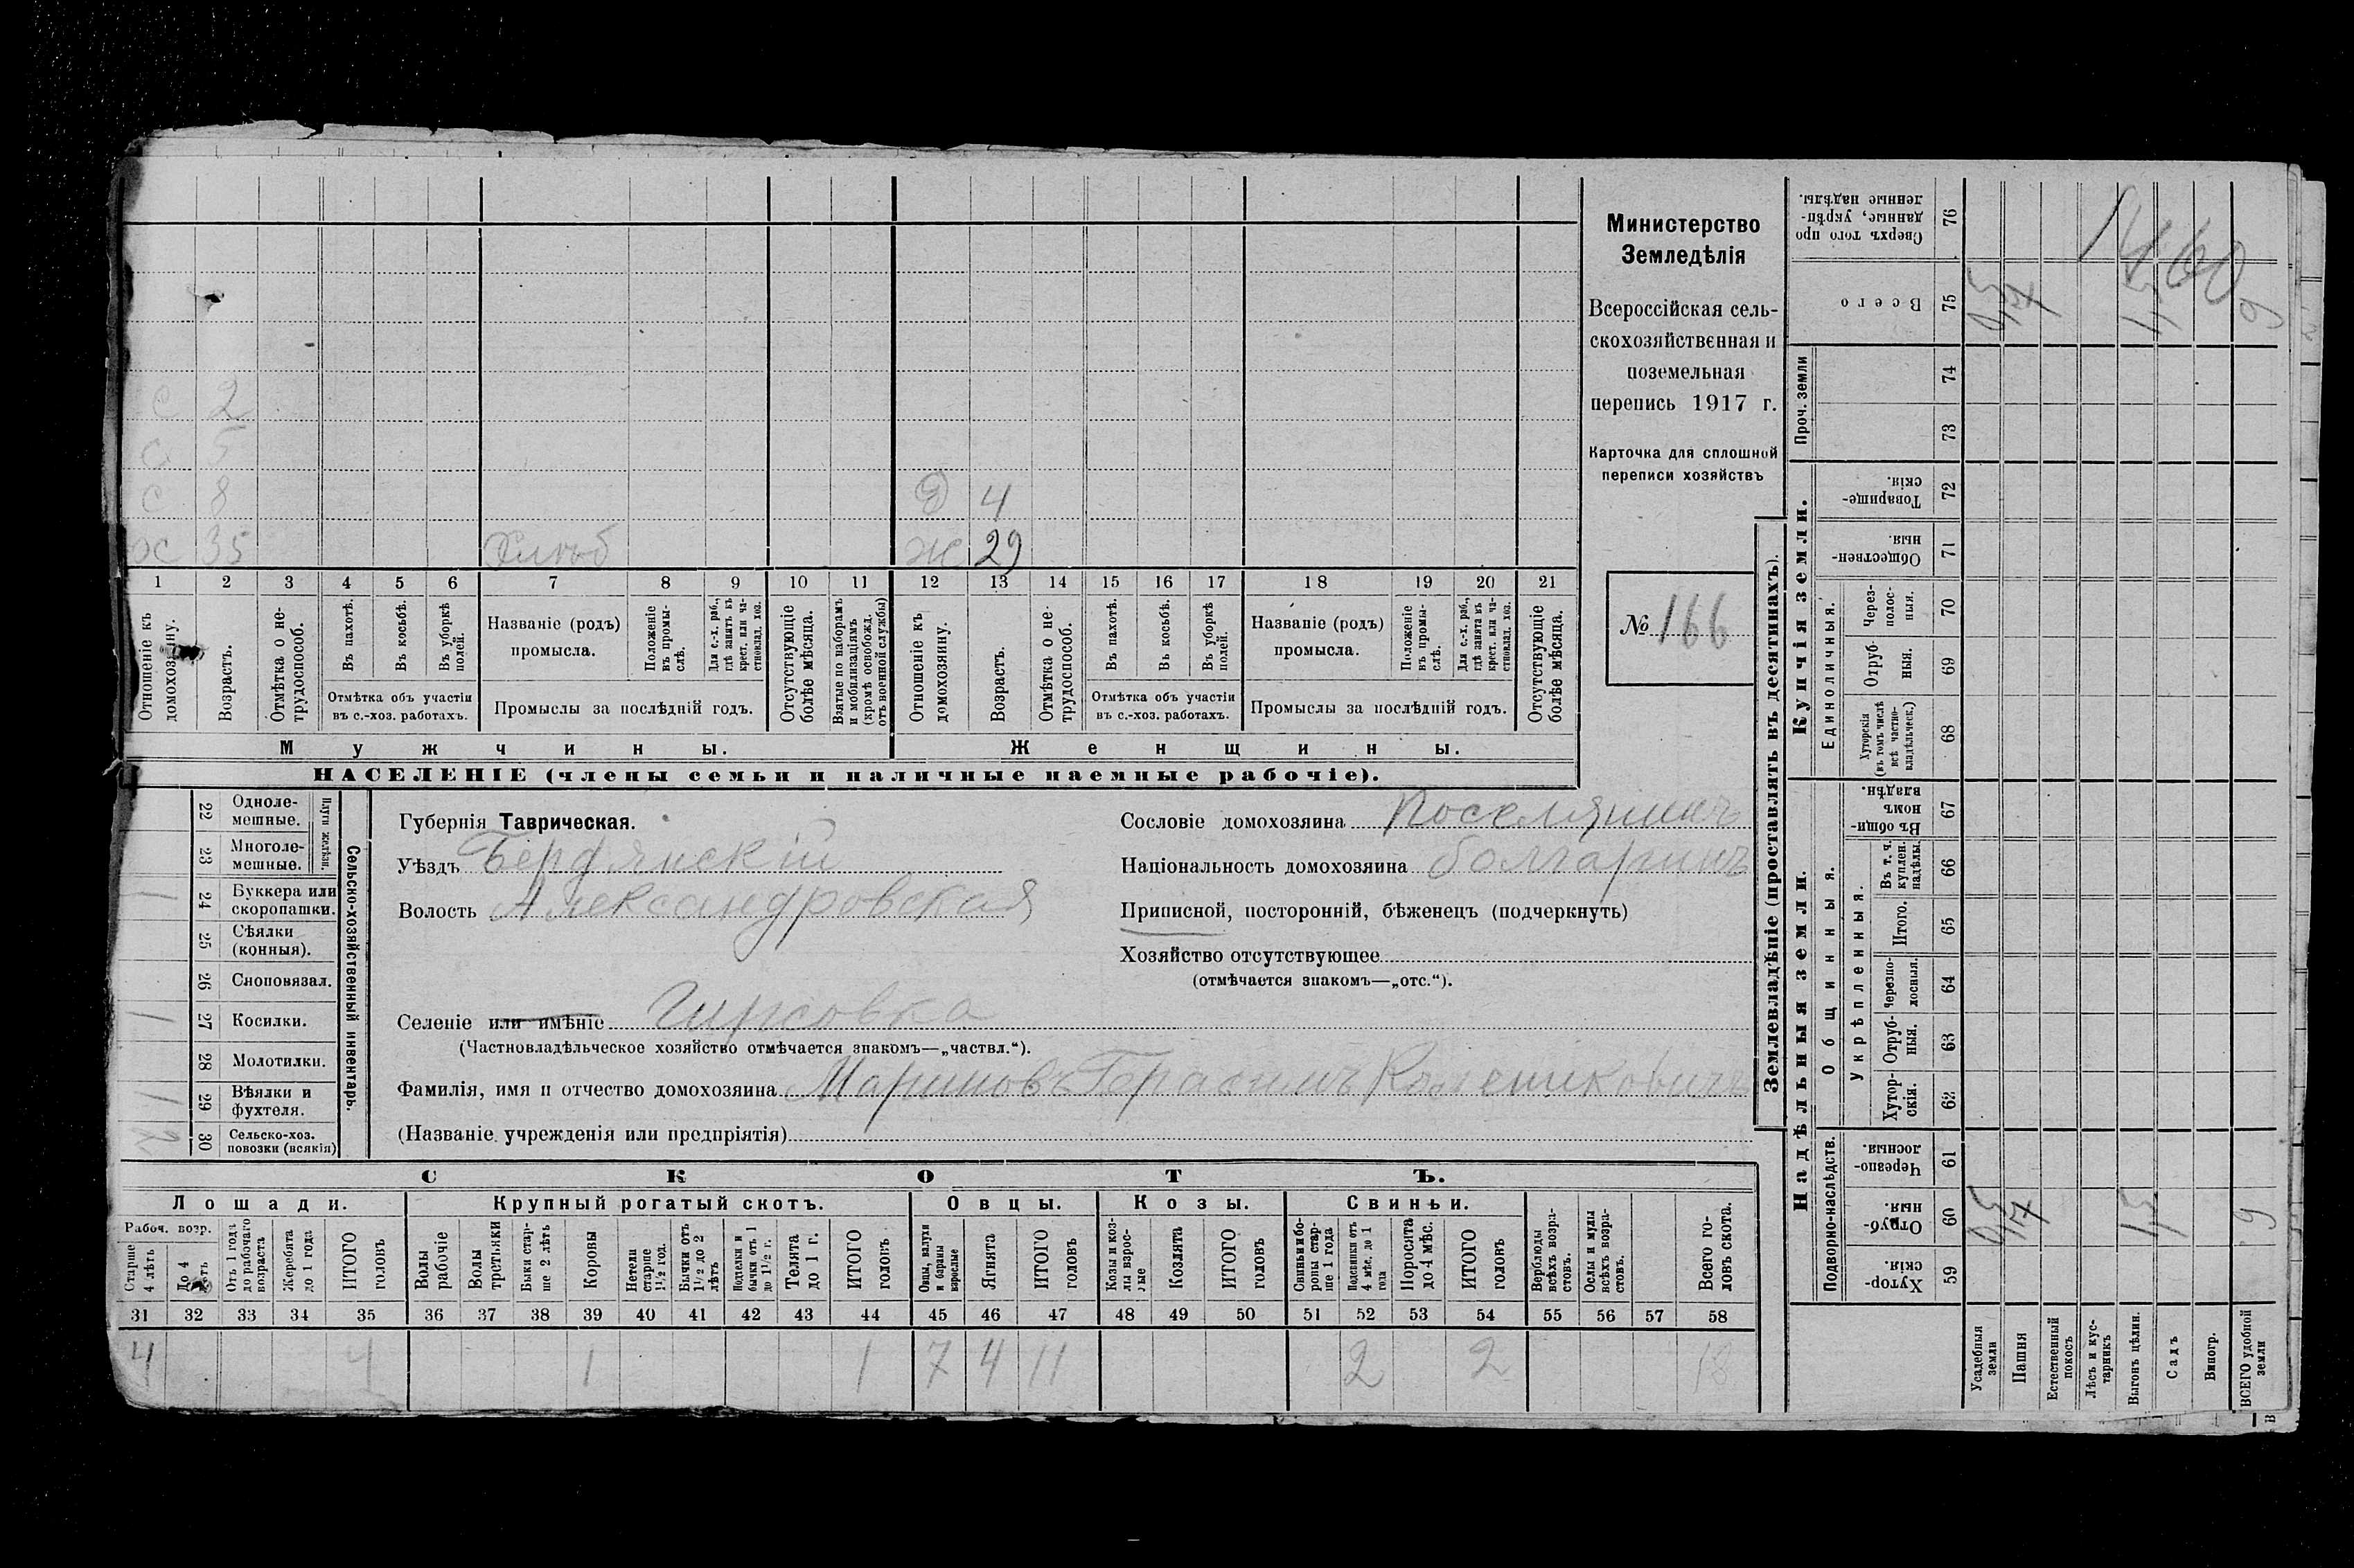 с 2
с 5
с 8 Д 4
х 35 Хлѣб ж 29
1 2 3 4 5 6 7 8 9 10 11 12 13 14 15 16 17 18 19 20 21
Отношеніе къ домохозяину.
Возрастъ.
Отмѣтка о не-трудоспособ.
Въ пахотѣ.
Въ косьбѣ.
Въ уборкѣ полей.
Отмѣтка объ участіи въ с.-хоз. работахъ.
Названіе (родъ) промысла.
Положеніе въ промы-слѣ.
Для с.-х. раб., гдѣ занятъ въ крест. или ча-стновлад. хоз.
Промыслы за послѣдній годъ.
Отсутствующіе болѣе мѣсяца.
Взятые по наборамъ и мобилизаціямъ (кромѣ освобожд. отъ военной службы)
Отношеніе къ домохозяину.
Возрастъ.
Отмѣтка о не-трудоспособ.
Въ пахотѣ.
Въ косьбѣ.
Въ уборкѣ полей.
Отмѣтка объ участіи въ с.-хоз. работахъ.
Названіе (родъ) промысла.
Положеніе въ промы-слѣ.
Для с.-х. раб., гдѣ занята въ крест. или ча-стновлад. хоз.
Промыслы за послѣдній годъ.
Отсутствующіе болѣе мѣсяца.
Мужчины.
Женщины.
НАСЕЛЕНІЕ (члены семьи и наличные наемные рабочіе).
Министерство
Земледѣлія
Всероссійская сель-
скохозяйственная и
поземельная
перепись 1917 г.
Карточка для сплошной
переписи хозяйствъ
№ 166
Сельско-хозяйственный инвентарь.
Плуги желѣзн.
22 Одноле-мешные.
23 Многоле-мешные.
24 Буккера или скоропашки. 1
25 Сѣялки (конныя).
26 Сноповязал.
27 Косилки. 1
28 Молотилки.
29 Вѣялки и фухтеля. 1
30 Сельско-хоз. повозки (всякія) 2
Губернія Таврическая.
Уѣздъ Бердянскій
Волость Александровская
Селеніе или имѣніе Гирсовка
(Частновладѣльческое хозяйство отмѣчается знакомъ—„частвл.“).
Фамилія, имя и отчество домохозяина Мариновъ Герасимъ
(Названіе учрежденія или предпріятія)
Сословіе домохозяина Поселянинъ
Національность домохозяина болгаринъ
Приписной, посторонній, бѣженецъ (подчеркнуть)
Хозяйство отсутствующее
(отмѣчается знакомъ—„отс.“).
СКОТЪ.
Лошади. Крупный рогатый скотъ. Овцы. Козы. Свиньи.
Рабоч. возр.
Старше 4 лѣтъ
До 4 лѣтъ
Отъ 1 года до рабочаго возраста
Жеребята до 1 года
ИТОГО головъ
Волы рабочіе
Волы третьяки
Быки стар-ше 2 лѣтъ
Коровы
Нетели старше 1½ год.
Бычки отъ 1½ до 2 лѣтъ
Подтелки и бычки отъ 1 до 1½ г.
Телята до 1 г.
ИТОГО головъ
Овцы, валухи и бараны взрослые
Ягнята
ИТОГО головъ
Козы и коз-лы взрос-лые
Козлята
ИТОГО головъ
Свиньи и бо-ровы стар-ше 1 года
Подсвинки отъ 4 мѣс. до 1 года
Поросята до 4 мѣс.
ИТОГО головъ
Верблюды всѣхъ возра-стовъ.
Ослы и мулы всѣхъ возра-стовъ.
Всего го-ловъ скота.
31 32 33 34 35 36 37 38 39 40 41 42 43 44 45 46 47 48 49 50 51 52 53 54 55 56 57 58
4 4 1 1 7 4 11 2 2 18
Землевладѣніе (проставлять въ десятинахъ).
Надѣльныя земли.
Купчія земли.
Проч. земли
Подворно-наслѣдств.
Общинныя.
Укрѣпленныя.
Единоличныя.
Сверхъ того про-данные, укрѣп-ленные надѣлы. 76
Всего 75
74
73
Товарище-скія. 72
Обществен-ныя. 71
Через-полос-ныя. 70
Отруб-ныя. 69
Хуторскія (въ томъ числѣ всѣ частно-владѣльческ.) 68
Въ общи-номъ владѣн. 67
Въ т. ч. куплен. надѣлы. 66
Итого. 65
Черезпо-лосныя. 64
Отруб-ныя. 63
Хутор-скія. 62
Черезпо-лосныя. 61
Отруб-ныя. 60
Хутор-скія. 59
Усадебныя земли
Пашня
Естественный покосъ
Лѣсъ и кус-тарникъ
Выгонъ цѣлин.
Садъ
Виногр.
ВСЕГО удобной земли
№160
9
9